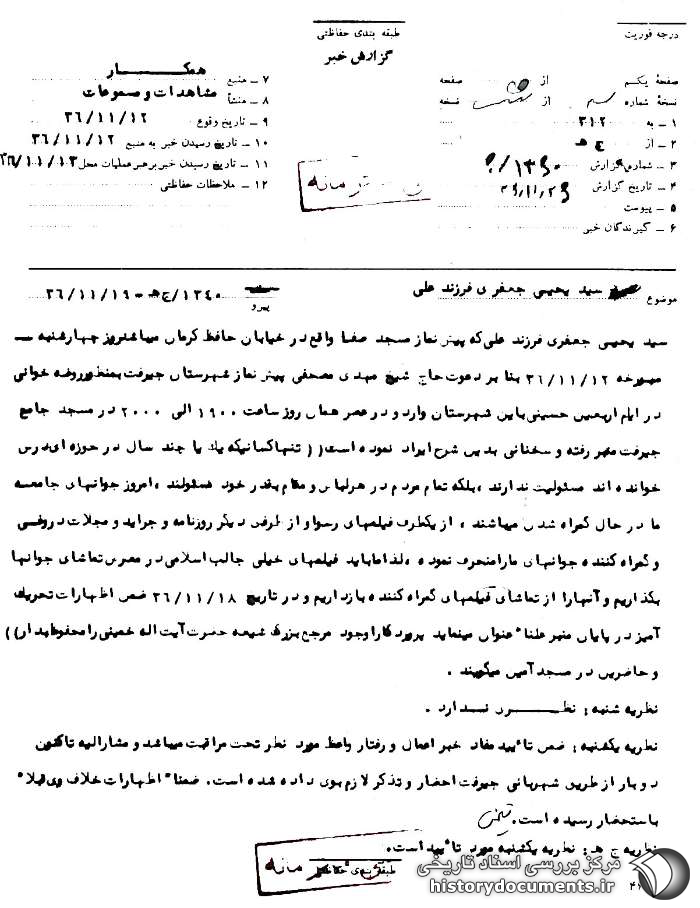 درجه فوریت
طبقه بندی حفاظتی
گزارش خبر
صفحهٔ یکم از صفحه
نسخهٔ شماره سه از شش نسخه
۱ ــ به ۳۱۲
۲ ــ از ج ه
۳ ــ شماره گزارش
۴ ــ تاریخ گزارش
۵ ــ پیوست
۶ ــ گیرندگان خبر
۷ ــ منبع همکــار
۸ ــ منشأ مشاهدات و مسموعات
۹ ــ تاریخ وقوع ۳۶/۱۱/۱۲
۱۰ ــ تاریخ رسیدن خبر به منبع ۳۶/۱۱/۱۲
۱۱ ــ تاریخ رسیدن خبر برهبر عملیات محل ۳۶/۱۱/۱۳
۱۲ ــ ملاحظات حفاظتی
موضوع سید یحیی جعفری فرزند علی
پیرو ۱۳۴۰/ج ه - ۳۶/۱۱/۱۹
سید یحیی جعفری فرزند علی که پیش نماز مسجد صفا واقع در خیابان حافظ کرمان میباشد روز چهارشنبه ــ
مورخه ۳۶/۱۱/۱۲ بنا بر دعوت حاج شیخ مهدی مصحفی پیش نماز شهرستان جیرفت بمنظور روضه خوانی
در ایام اربعین حسینی باین شهرستان وارد و در عصر همان روز ساعت ۱۹۰۰ الی ۲۰۰۰ در مسجد جامع
جیرفت منبر رفته و سخنانی بدین شرح ایراد نموده است (( تنها کسانیکه یک یا چند سال در حوزه ای درس
خوانده اند مسئولیت ندارند ، بلکه تمام مردم در هر لباس و مقام بقدر خود مسئولند ، امروز جوانهای جامعه
ما در حال گمراه شدن میباشند ، از یکطرف فیلمهای رسوا و از طرفی دیگر روزنامه و جراید و مجلات دروغی
و گمراه کننده جوانهای ما را منحرف نموده ، لذا ما باید فیلمهای خیلی جالب اسلامی در معرض تماشای جوانها
بگذاریم و آنها را از تماشای فیلمهای گمراه کننده بازداریم و در تاریخ ۳۶/۱۱/۱۸ ضمن اظهارات تحریک
آمیز در پایان منبر علنا" عنوان مینماید پروردگارا وجود مرجع بزرگ شیعه حضرت آیت اله خمینی را محفوظ بدار))
و حاضرین در مسجد آمین میگویند .
نظریه شنبه : نظــری نـدارد .
نظریه یکشنبه : ضمن تأیید مفاد خبر اعمال و رفتار واعظ مورد نظر تحت مراقبت میباشد و مشارالیه تاکنون
دوبار از طریق شهربانی جیرفت احضار و تذکر لازم بوی داده شده است. ضمنا" اظهارات خلاف وی قبلا"
باستحضار رسیده است.
نظریه ج ه : نظریه یکشنبه مورد تأیید است.
طبقه بندی حفاظتی
مرکز بررسی اسناد تاریخی
historydocuments.ir